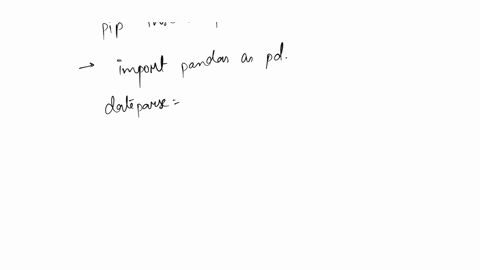 pip
→ import pandas as pd.
dateparse =